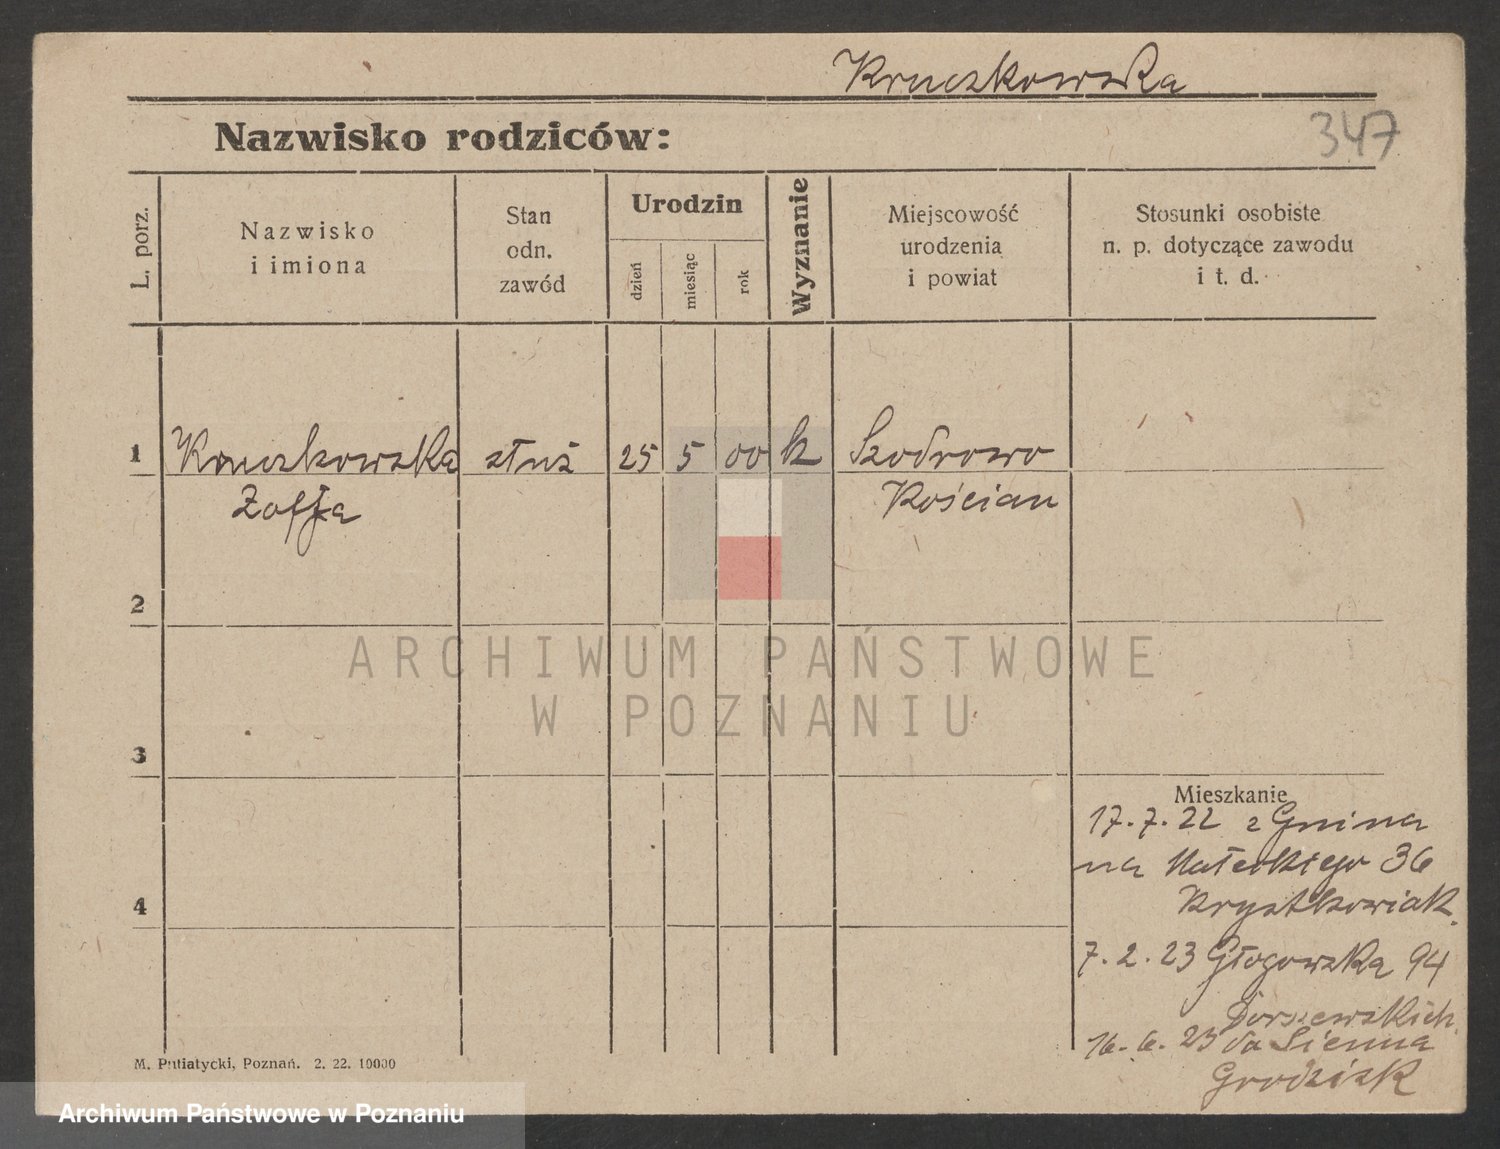 Kruczkowska
347
Nazwisko rodziców:
L. porz.
Nazwisko
i imiona
Stan
odn.
zawód
Urodzin
dzień
miesiąc
rok
Wyznanie
Miejscowość
urodzenia
i powiat
Stosunki osobiste
n. p. dotyczące zawodu
i t. d.
1 Kruczkowska służ 25 5 00 k Szodrowo
Zofja Kościan
2
ARCHIWUM PAŃSTWOWE
W POZNANIU
3
Mieszkanie
17.7.22 z Gnina
na Małeckiego 36
4
Krystkowiak.
7.2.23 Głogowska 94
Dorszewskich.
16.6.23 do Sienna
Grodzisk
M. Putiatycki, Poznań. 2. 22. 10000
Archiwum Państwowe w Poznaniu